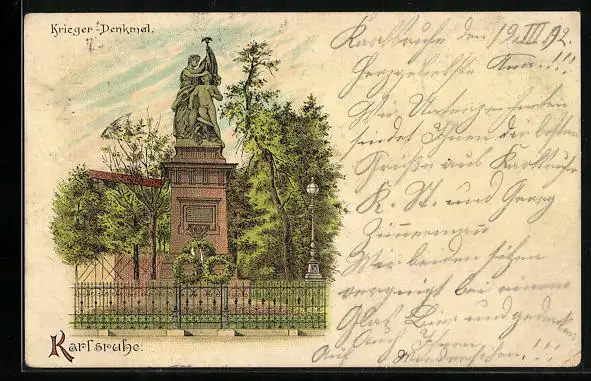 Krieger-Denkmal.
Karlsruhe:
Karlsruhe den 19.III.92.
Herzgeliebte Anna!!!
Die Unterzeichneten
sendet Ihnen die besten
Grüße aus Karlsruhe
K. St. und Georg
Zimmermann
Wir beiden sitzen
vergnügt bei einem
Glas Bier und gedenken
auch Ihnen
Auf Wiedersehen!!!